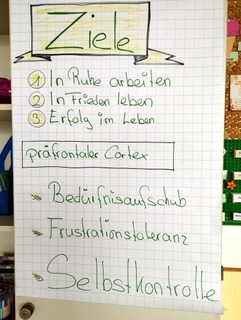 Ziele
1 In Ruhe arbeiten
2 In Frieden leben
3 Erfolg im Leben
präfrontaler Cortex
Bedürfnisaufschub
Frustrationstoleranz
Selbstkontrolle